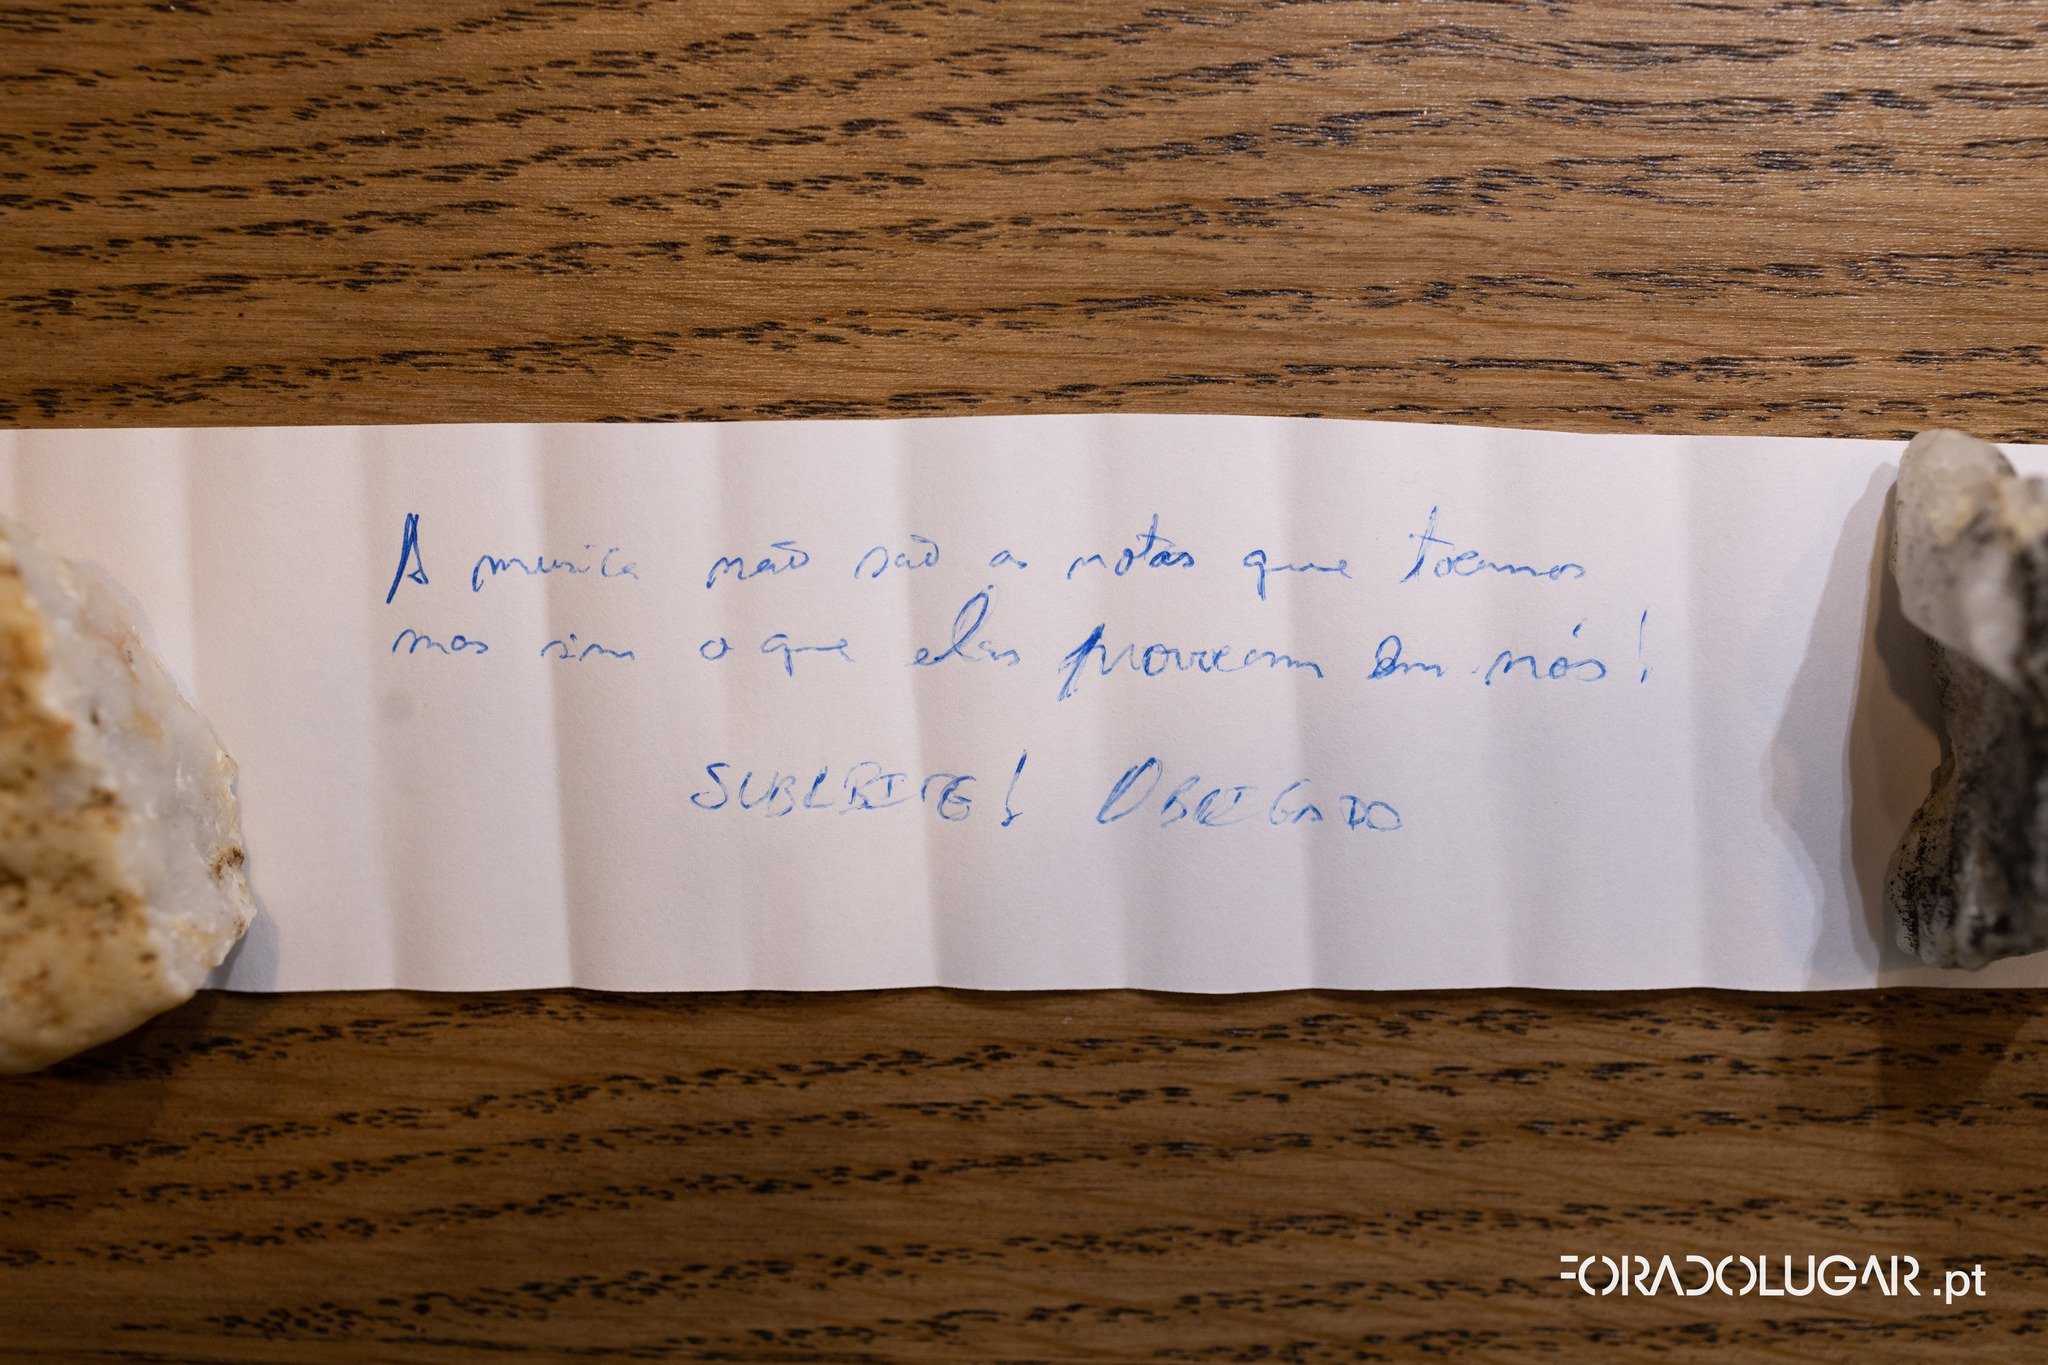 A musica não são as notas que tocamos
mas sim o que elas provocam em nós!
Obrigado
FORADOLUGAR.pt